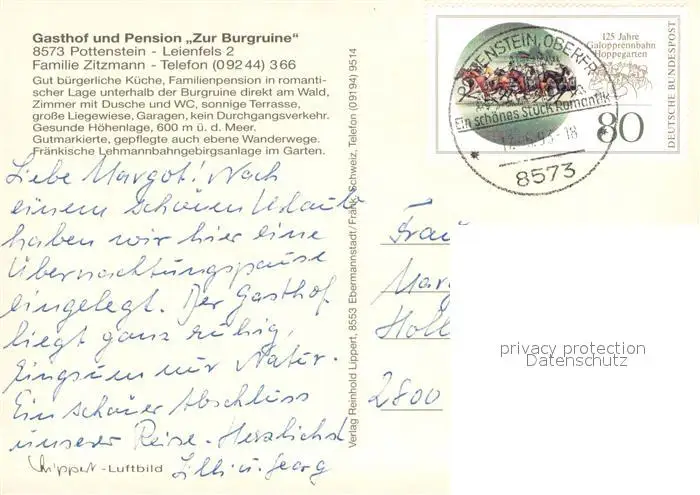 Gasthof und Pension „Zur Burgruine“
8573 Pottenstein - Leienfels 2
Familie Zitzmann - Telefon (092 44) 3 66
Gut bürgerliche Küche, Familienpension in romanti-
scher Lage unterhalb der Burgruine direkt am Wald,
Zimmer mit Dusche und WC, sonnige Terrasse,
große Liegewiese, Garagen, kein Durchgangsverkehr.
Gesunde Höhenlage, 600 m ü. d. Meer.
Gutmarkierte, gepflegte auch ebene Wanderwege.
Fränkische Lehmannbahngebirgsanlage im Garten.
Liebe Margot! Nach
einem schönen Urlaub
haben wir hier eine
Übernachtungspause
eingelegt. Der Gasthof
liegt ganz ruhig,
ringsum nur Natur.
Ein schöner Abschluss
unserer Reise. Herzlichst
Lilli u. Georg
Lippert-Luftbild
Verlag Reinhold Lippert, 8553 Ebermannstadt/Fränk. Schweiz, Telefon (09194) 9514
125 Jahre
Galopprennbahn
Hoppegarten
80
DEUTSCHE BUNDESPOST
POTTENSTEIN, OBERFR
Ein schönes Stück Romantik
8573
Frau
Marg
Holl
2800
privacy protection
Datenschutz